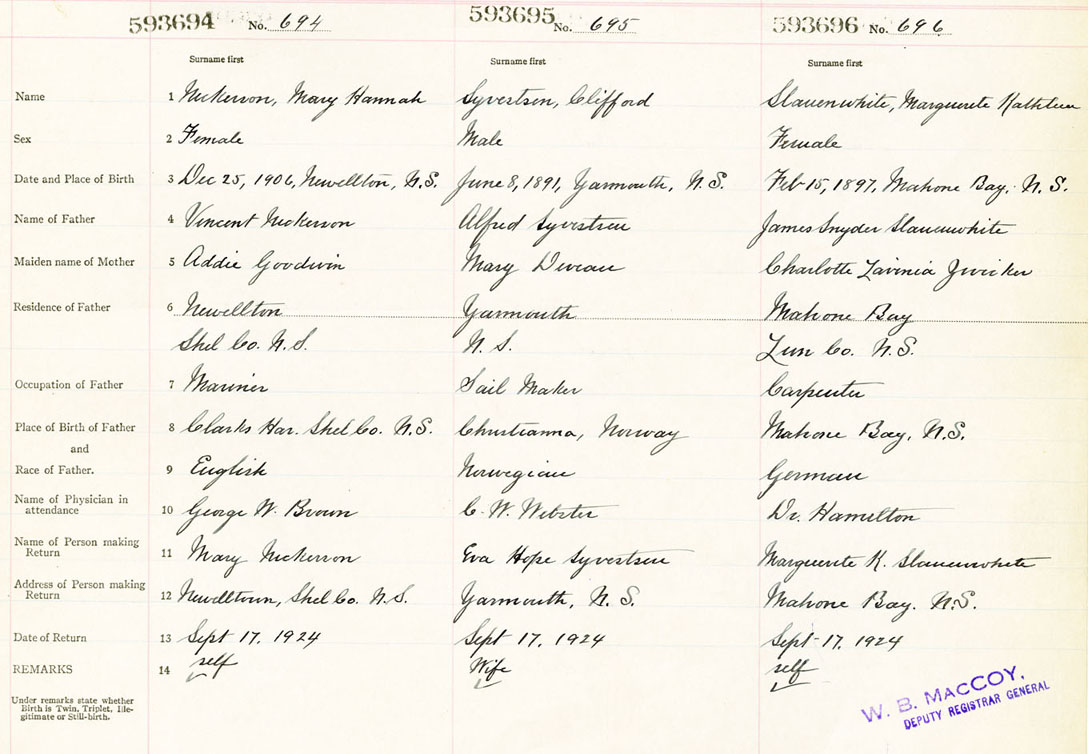 593694 No. 694 593695 No. 695 593696 No. 696
Surname first Surname first Surname first
Name 1 Nickerson, Mary Hannah Syvestsen, Clifford Slauenwhite, Marguerite Kathleen
Sex 2 Female Male Female
Date and Place of Birth 3 Dec 25, 1906, Newellton, N.S. June 8, 1891, Yarmouth, N.S. Feb 15, 1897, Mahone Bay, N.S.
Name of Father 4 Vincent Nickerson Alfred Syvestsen James Snyder Slauenwhite
Maiden name of Mother 5 Addie Goodwin Mary Deveau Charlotte Lavinia Zwicker
Residence of Father 6 Newellton Yarmouth Mahone Bay
Shel Co. N.S. N.S. Lun Co. N.S.
Occupation of Father 7 Mariner Sail Maker Carpenter
Place of Birth of Father 8 Clarks Har. Shel Co. N.S. Christianna, Norway Mahone Bay, N.S.
and
Race of Father. 9 English Norwegian German
Name of Physician in
attendance 10 George W. Brown C. W. Webster Dr. Hamilton
Name of Person making
Return 11 Mary Nickerson Eva Hope Syvestsen Marguerite K. Slauenwhite
Address of Person making
Return 12 Newelltown, Shel Co. N.S. Yarmouth, N.S. Mahone Bay. N.S.
Date of Return 13 Sept 17, 1924 Sept 17, 1924 Sept 17, 1924
REMARKS 14 self Wife self
Under remarks state whether
Birth is Twin, Triplet, Ille-
gitimate or Still-birth.
W. B. MACCOY,
DEPUTY REGISTRAR GENERAL